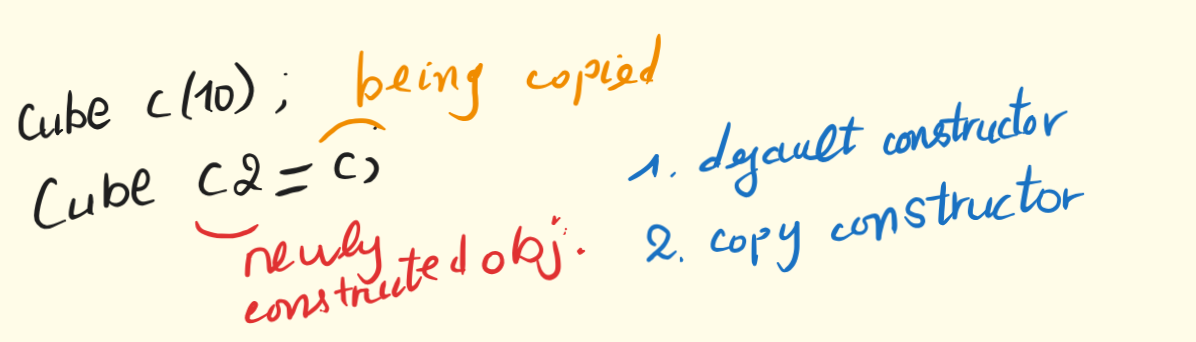 Cube c(10); being copied
Cube c2 = c;
newly
constructed obj.
1. default constructor
2. copy constructor